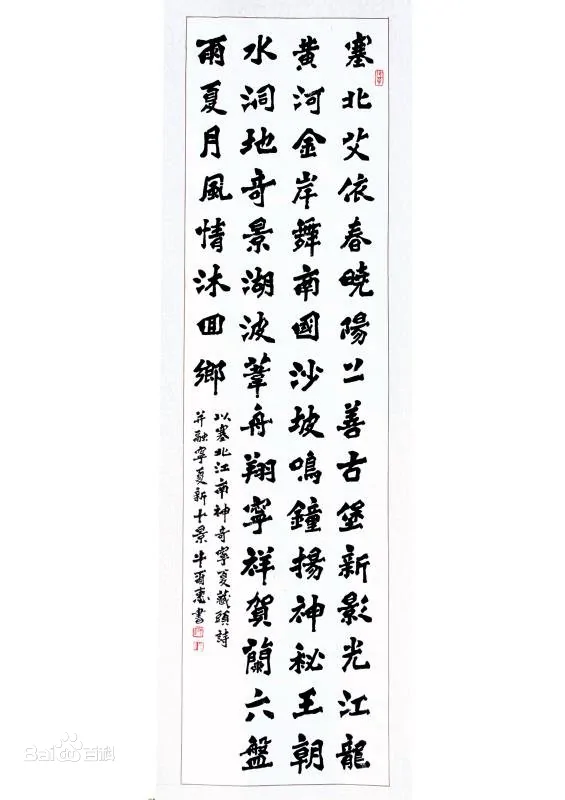 塞北艾依春曉陽上善古堡新影光江龍
黄河金岸舞南國沙坡鳴鐘揚神秘王朝
水洞地奇景湖波葦舟翔寧祥賀蘭六盤
雨夏月風情沐回鄉
以塞北江南神奇寧夏藏頭詩
并融寧夏新十景 牛爾惠書
Bai百科